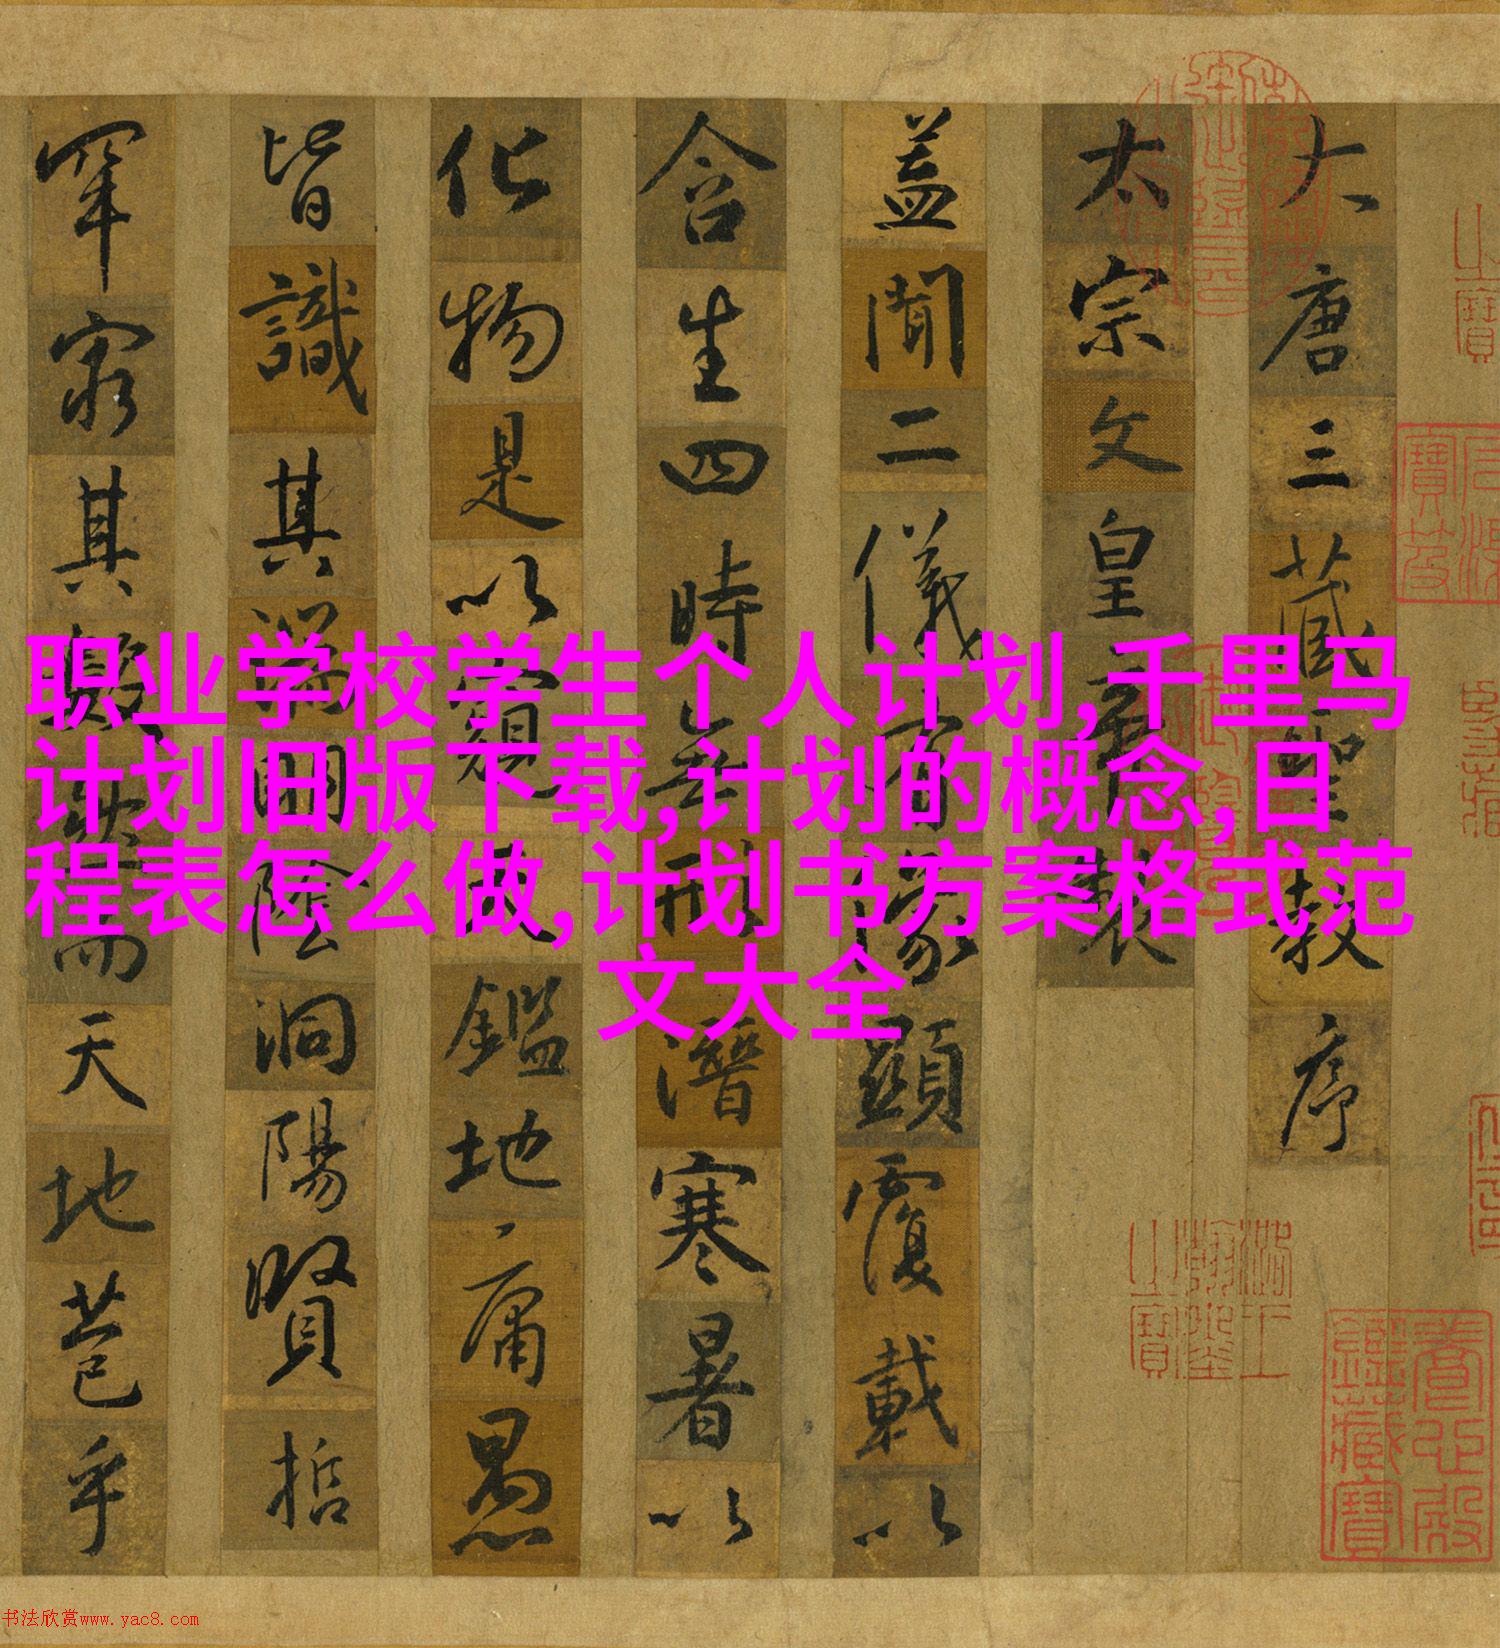 大唐三藏聖教序
太宗文皇帝製
蓋聞二儀有像顯覆載以
含生四時無形潛寒暑以
化物是以窺天鑑地庸愚
皆識其端明陰洞陽賢哲
罕窮其數然而天地苞乎
职业学校学生个人计划,千里马
计划旧版下载,计划的概念,日
程表怎么做,计划书方案格式范
文大全
石渠寶笈
養心殿鑑藏寶
书法欣赏www.yac8.com